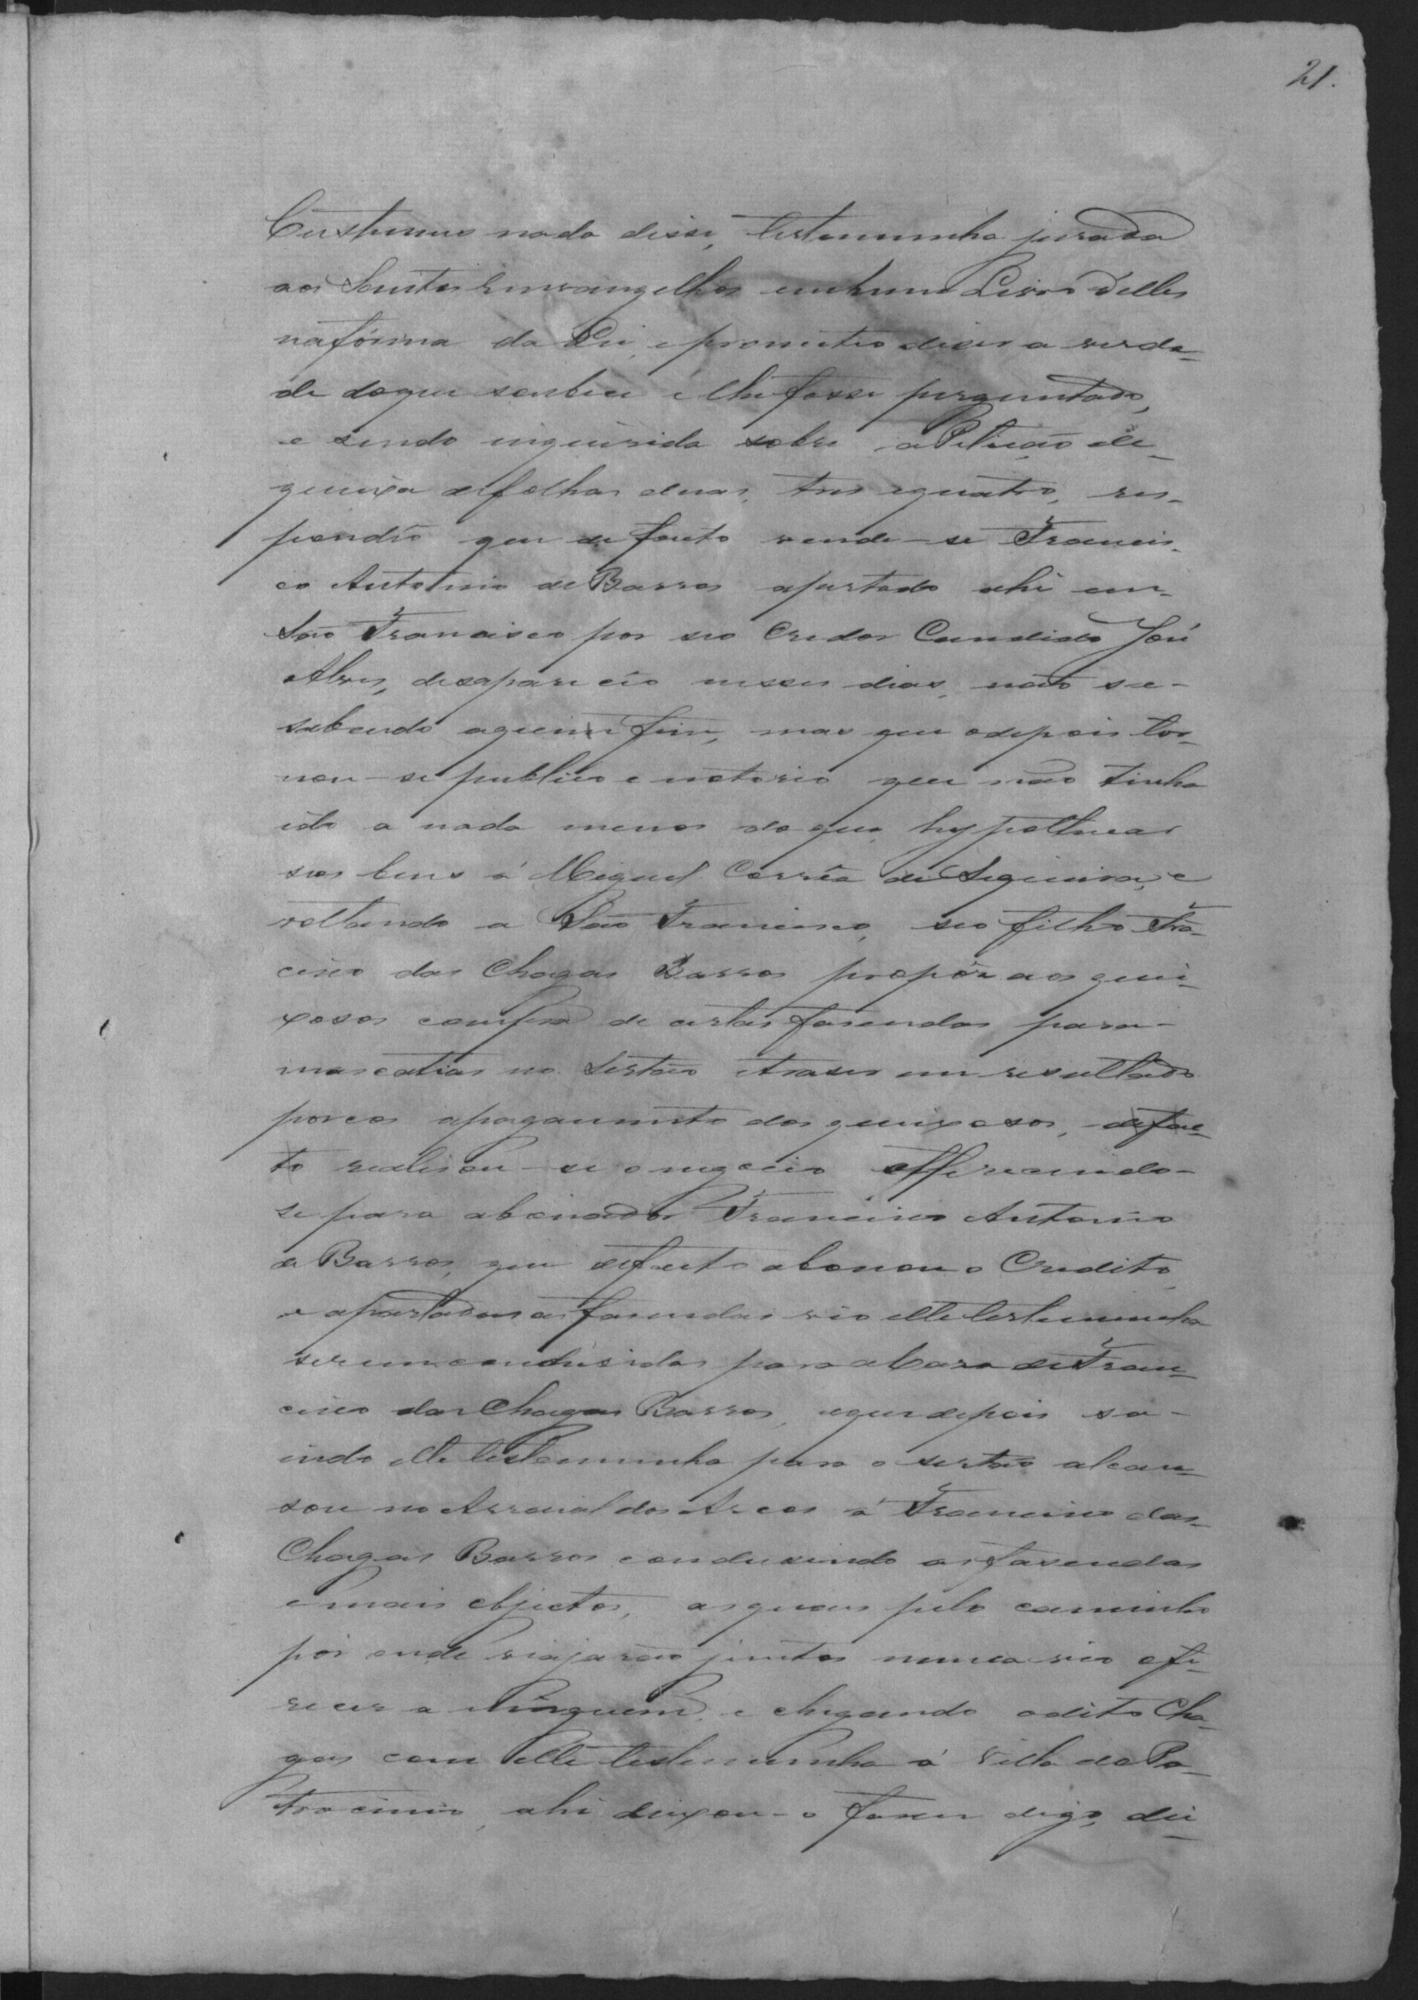 21.
Custumes nada disse, testemunha jurada
aos Santos Envangelhos em hum Livro delles
na fórma da Lei, e prometeo dizer a verda-
de doque soubece e lhe fosse perguntado,
e sendo inquirida sobre a Petição de
queixa de folhas duas, tres e quatro, res-
pondêo que de facto vendo-se Francis-
co Antonio de Barros apertado ahi em
São Francisco por seo Credor Candido José
Alves, desapareceo nesses dias, não se
sabendo a que fim, mas que depois tor-
nou-se publico e notorio que não tinha
ido a nada menos do que hypothecar
seos bens á Miguel Corrêa de Siqueira, e
voltando a São Francisco, seo filho Fran-
cisco das Chagas Barros propôz aos quei-
xosos compra de certas fasendas para
mascatiar no Sertão e traser em resultado
porcos a pagamento dos queixosos, de fac-
to realisou-se o negocio offerecendo-
se para abonador Francisco Antonio
de Barros, que de facto abonou o Credito,
e apartadas as fasendas vio elle testemunha
serem condusidas para a Casa de Fran-
cisco das Chagas Barros, e que depois sa-
indo elle testemunha para o sertão alcan-
sou no Arraial dos Arcos á Francisco das
Chagas Barros condusindo as fasendas
e mais objectos, as quaes pelo caminho
por onde viajarão juntos nunca vio ofe-
recer a ninguem, e chegando o dito Cha-
gas com elle testemunha á Villa do Pa-
trocinio, ahi deixou-o faser digo, dei-